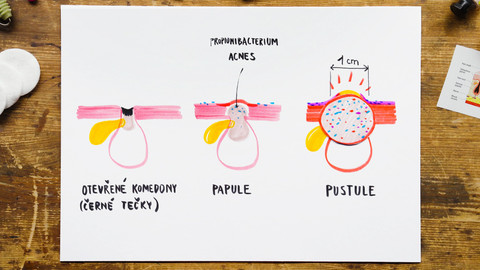 PROPIONIBACTERIUM
ACNES
1 cm
OTEVŘENÉ KOMEDONY
(ČERNÉ TEČKY)
PAPULE
PUSTULE